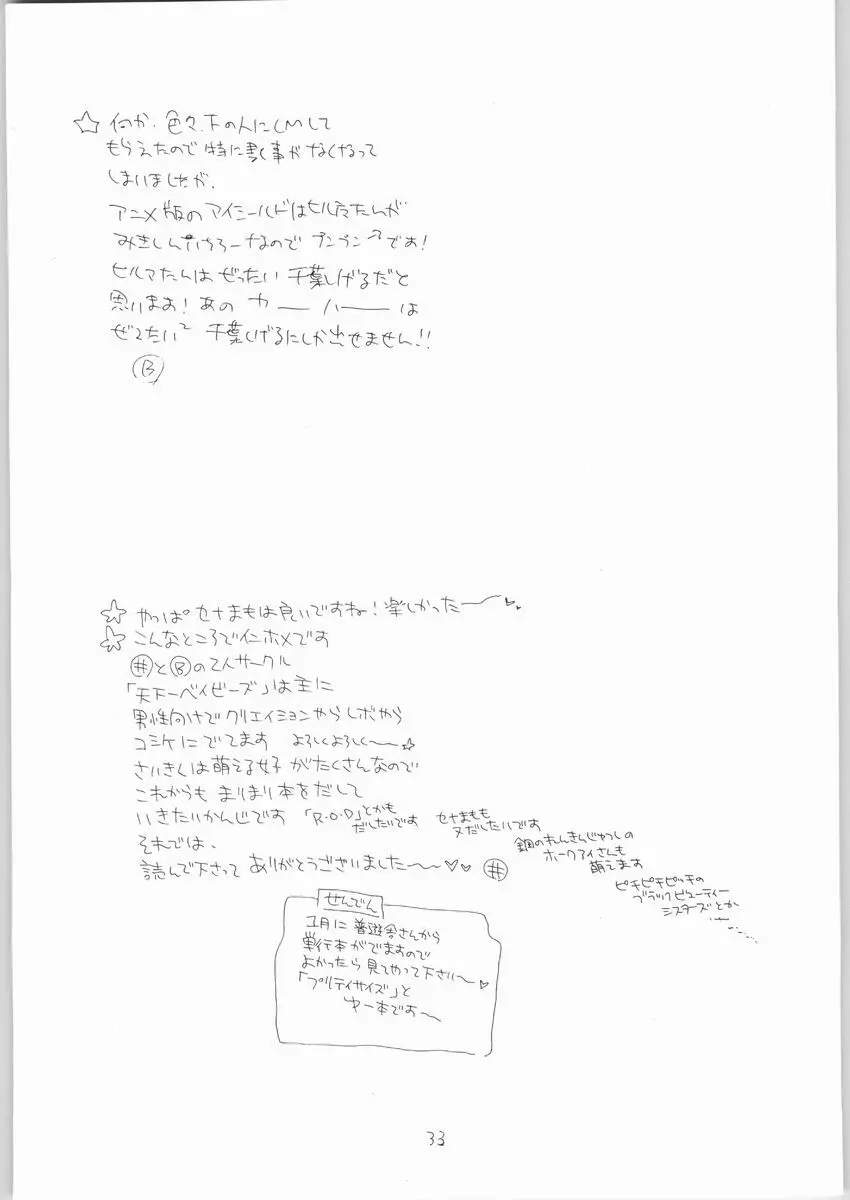 ☆ 何か、色々、下の人にCMして
もらえたので 特に書く事がなくなって
しまいましたが、
アニメ版の アイシールドはヒル魔たんが
みきしんいちろーなので プンプンです!
ヒルマたんは ぜったい 千葉しげるだと
思います! あの カーーハーー は
ぜったい² 千葉しげるにしか出せません!!
Ⓑ
☆ やっぱ セナまもは良いですね! 楽しかったー〜♥
☆ こんなところでインホメです
㊉とⒷの2人サークル
「天下一ベイビーズ」は主に
男性向けで クリエイションやら レボやら
コミケに でてます よろしくよろしく〜☆
さいきんは萌える女子 がたくさんなので
これからも まりまり本をだして
いきたいかんじです 「R.O.D」とかも
だしたいです セナまもも
又だしたいです
鋼のれんきんじゅつしの
ホークアイさんも
萌えます
ピチピチピッチの
ブラックビューティー
シスターズとか
……
それでは、
読んで下さって ありがとうございました〜〜♥♥ #
せんでん
1月に 普遊舎さんから
単行本がでますので
よかったら 見てやって下さい〜♥
「プリティサイズ」と
ゆー本です〜
33